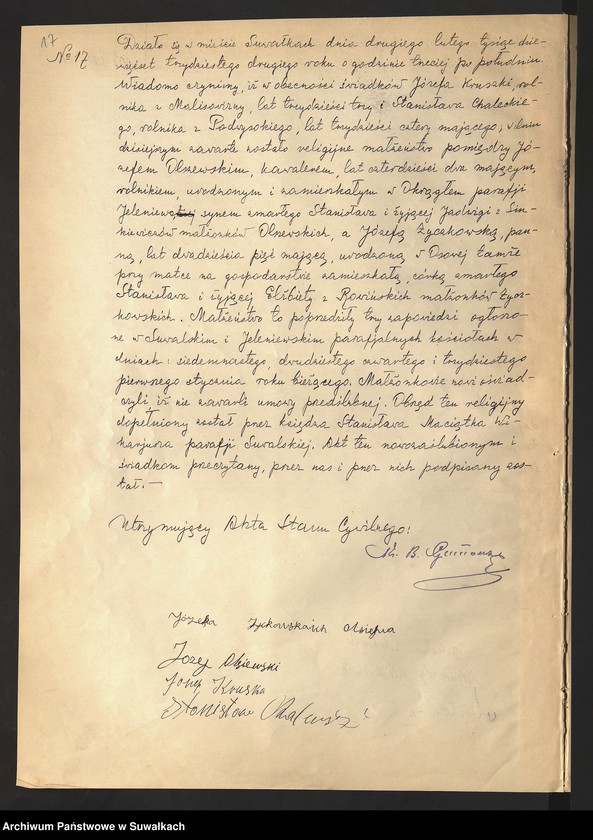 17
№ 17
Działo się w mieście Suwałkach dnia drugiego lutego tysiąc dzie-
więset trzydziestego drugiego roku o godzinie trzeciej po południu.
Wiadomo czynimy, iż w obecności świadków Józefa Kruszki, rol-
nika z Malesowizny, lat trzydzieści trzy i Stanisława Chaleckie-
go, rolnika z Podwysokiego, lat trzydzieści cztery mającego, w dniu
dzisiejszym zawarte zostało religijne małżeństwo pomiędzy Jó-
zefem Olszewskim, kawalerem, lat czterdzieści dwa mającym,
rolnikiem, urodzonym i zamieszkałym w Okrągłem parafji
Jeleniewo synem zmarłego Stanisława i żyjącej Jadwigi z Sin-
kiewiczów małżonków Olszewskich, a Józefą Życzkowską, pan-
ną, lat dwadzieścia pięć mającą, urodzoną w Osowej tamże
przy matce na gospodarstwie zamieszkałą, córką zmarłego
Stanisława i żyjącej Elżbiety z Rowińskich małżonków Życz-
kowskich. Małżeństwo to poprzedziły trzy zapowiedzi ogłoszo-
ne w Suwalskim i Jeleniewskim parafjalnych kościołach w
dniach: siedemnastego, dwudziestego czwartego i trzydziestego
pierwszego stycznia roku bieżącego. Małżonkowie nowi oświad-
czyli iż nie zawarli umowy przedślubnej. Obrzęd ten religijny
dopełniony został przez księdza Stanisława Maciątka Wi-
karjusza parafji Suwalskiej. Akt ten nowozaślubionym i
świadkom przeczytany, przez nas i przez nich podpisany zos-
tał. —
Utrzymujący Akta Stanu Cywilnego:
Ks. B.
Józefa
Józef
Józef Kruszka
Stanisław
Archiwum Państwowe w Suwałkach